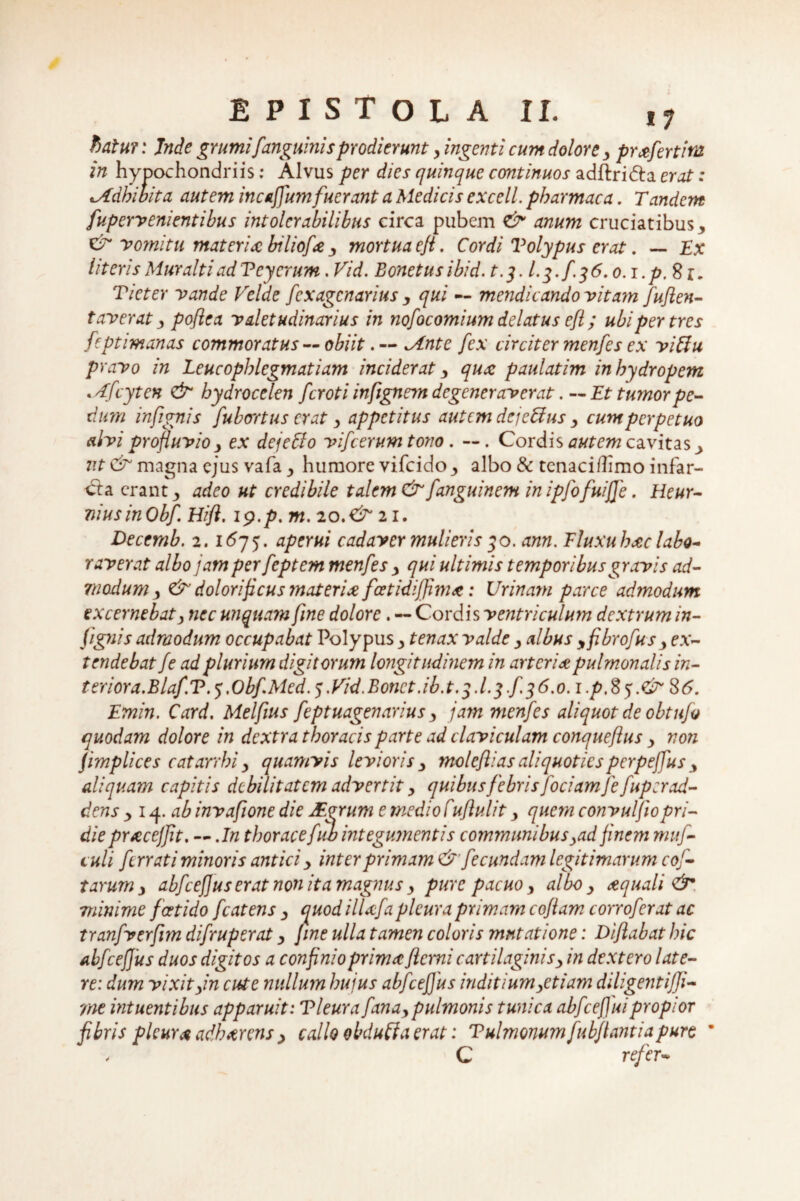 EPISTOLA II. 17
batur: Inde grumi sanguinis prodierunt, ingenti cum dolore, præsertim
in hypochondriis: Alvus per dies quinque continuos adstricta erat:
Adhibita autem incassum fuerant a Medicis excell. pharmaca. Tandem
supervenientibus intolerabilibus circa pubem & anum cruciatibus,
& vomitu materiæ biliosæ, mortua est. Cordi Polypus erat. — Ex
literis Muralti ad Peyerum. Vid. Bonetus ibid. t.3. l.3.s.36.o.1.p. 81.
Pieter vande Velde sexagenarius, qui — mendicando vitam susten-
taverat, postea valetudinarius in nosocomium delatus est; ubi per tres
septimanas commoratus — obiit. — Ante sex circiter menses ex victu
pravo in Leucophlegmatiam inciderat, quæ paulatim in hydropem
Ascyten & hydrocelen scroti insignem degeneraverat. — Et tumor pe-
dum insignis subortus erat, appetitus autem dejectus, cum perpetuo
alvi profluvio, ex dejecto viscerum tono. —. Cordis autem cavitas,
ut & magna ejus vasa, humore viscido, albo & tenacissimo infar-
cta erant, adeo ut credibile talem & sanguinem in ipso fuisse. Heur-
nius in Obs. Hist. 19.p. m. 20.& 21.
Decemb. 2. 1675. aperui cadaver mulieris 30. ann. Fluxu hæc labo-
raverat albo jam per septem menses, qui ultimis temporibus gravis ad-
modum, & dolorificus materiæ fœtidissimæ: Urinam parce admodum
excernebat, nec unquam sine dolore. — Cordis ventriculum dextrum in-
signis admodum occupabat Polypus, tenax valde, albus, fibrosus, ex-
tendebat se ad plurium digitorum longitudinem in arteriæ pulmonalis in-
teriora.Blas.P.5.Obs.Med. 5.Vid.Bonet.ib.t.3.l.3.s.36.o.1.p.85.& 86.
Emin. Card. Melsius septuagenarius, jam menses aliquot de obtuso
quodam dolore in dextra thoracis parte ad claviculam conquestus, non
simplices catarrhi, quamvis levioris, molestias aliquoties perpessus,
aliquam capitis debilitatem advertit, quibus febris sociam se superad-
dens, 14. ab invasione die Ægrum e medio sustulit, quem convulsio pri-
die præcessit. —.In thorace sub integumentis communibus,ad finem mus-
culi serrati minoris antici, inter primam & secundam legitimarum cos-
tarum, abscessus erat non ita magnus, pure pacuo, albo, æquali &
minime fœtido scatens, quod illæsa pleura primam costam corroserat ac
transversim disruperat, sine ulla tamen coloris mutatione: Distabat hic
abscessus duos digitos a confinio primæ sterni cartilaginis, in dextero late-
re: dum vixit,in cute nullum hujus abscessus inditium,etiam diligentissi-
me intuentibus apparuit: Pleura sana,pulmonis tunica abscessui propior
fibris pleuræ adhærens, callo obducta erat: Pulmonum substantia pure
C refer-